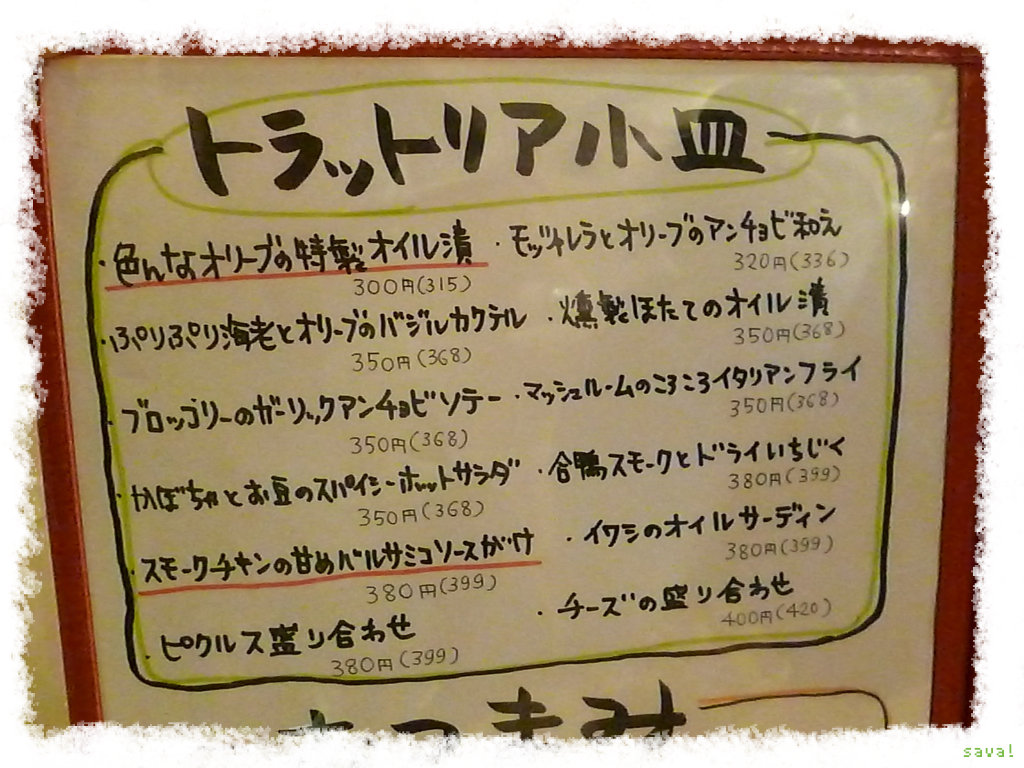 トラットリア小皿
・色んなオリーブの特製オイル漬
300円(315)
・ぷりぷり海老とオリーブのバジルカクテル
350円(368)
・ブロッコリーのガーリックアンチョビソテー
350円(368)
・かぼちゃとお豆のスパイシーホットサラダ
350円(368)
・スモークチキンの甘めバルサミコソースがけ
380円(399)
・ピクルス盛り合わせ
380円(399)
・モッツァレラとオリーブのアンチョビ和え
320円(336)
・燻製ほたてのオイル漬
350円(368)
・マッシュルームのころころイタリアンフライ
350円(368)
・合鴨スモークとドライいちじく
380円(399)
・イワシのオイルサーディン
380円(399)
・チーズの盛り合わせ
400円(420)
おつまみ
sava!